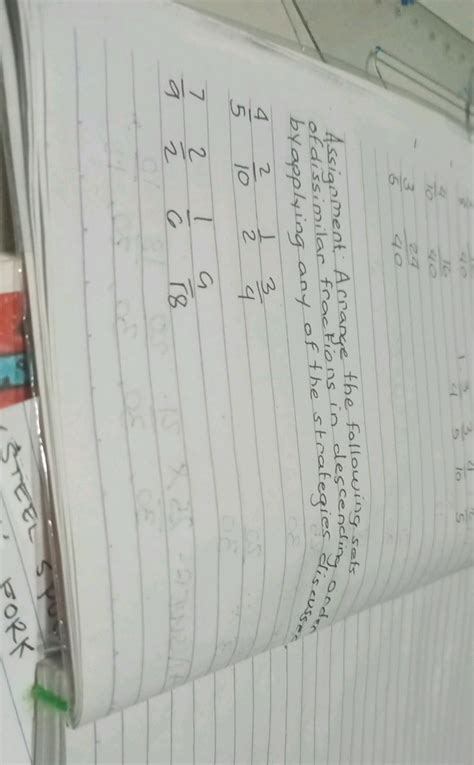 4/10 16/40
3/5 24/40
Assignment: Arrange the following sets
of dissimilar fractions in descending order
by applying any of the strategies discussed.
4/5 2/10 1/2 3/4
7/9 2/2 1/6 9/18
STEEL
FORK